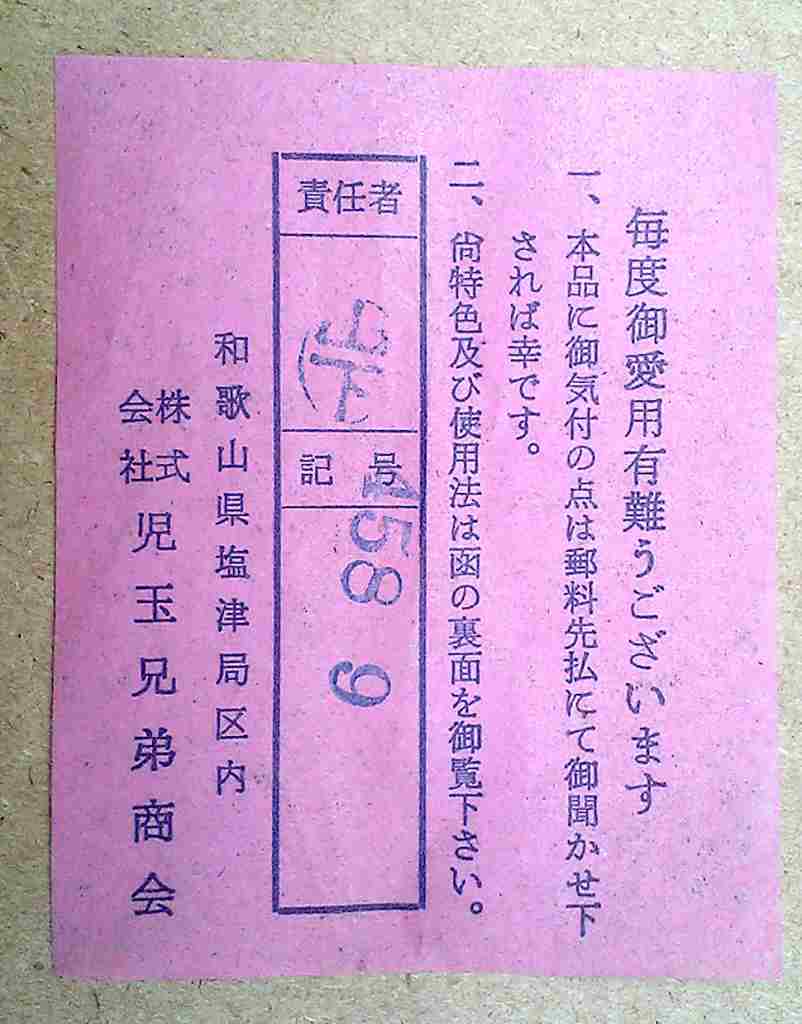 毎度御愛用有難うございます
一、本品に御気付の点は郵料先払にて御聞かせ下
されば幸です。
二、尚特色及び使用法は函の裏面を御覧下さい。
責任者
記号
4589
和歌山県塩津局区内
株式会社 児玉兄弟商会